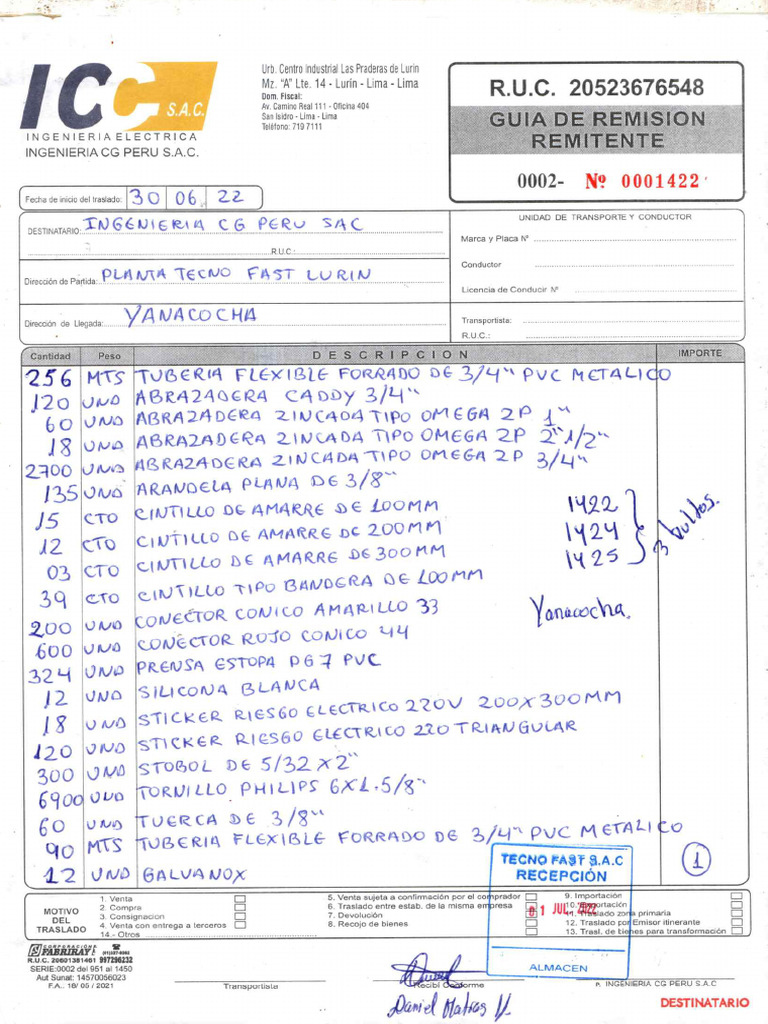 ICC S.A.C.
INGENIERIA ELECTRICA
INGENIERIA CG PERU S.A.C.
Urb. Centro Industrial Las Praderas de Lurin
Mz. "A" Lte. 14 - Lurín - Lima - Lima
Dom. Fiscal:
Av. Camino Real 111 - Oficina 404
San Isidro - Lima - Lima
Teléfono: 719 7111
R.U.C. 20523676548
GUIA DE REMISION
REMITENTE
0002- Nº 0001422
Fecha de inicio del traslado: 30 06 22
DESTINATARIO: INGENIERIA CG PERU SAC
R.U.C:
Dirección de Partida: PLANTA TECNO FAST LURIN
Dirección de Llegada: YANACOCHA
UNIDAD DE TRANSPORTE Y CONDUCTOR
Marca y Placa Nº
Conductor
Licencia de Conducir Nº
Transportista:
R.U.C.:
Cantidad Peso DESCRIPCION IMPORTE
256 MTS TUBERIA FLEXIBLE FORRADO DE 3/4" PVC METALICO
120 UND ABRAZADERA CADDY 3/4"
60 UND ABRAZADERA ZINCADA TIPO OMEGA 2P 1"
18 UND ABRAZADERA ZINCADA TIPO OMEGA 2P 2" 1/2"
2700 UND ABRAZADERA ZINCADA TIPO OMEGA 2P 3/4"
135 UND ARANDELA PLANA DE 3/8"
15 CTO CINTILLO DE AMARRE DE 100MM 1422
12 CTO CINTILLO DE AMARRE DE 200MM 1424
03 CTO CINTILLO DE AMARRE DE 300MM 1425
3 bultos.
39 CTO CINTILLO TIPO BANDERA DE 100MM
200 UND CONECTOR CONICO AMARILLO 33
Yanacocha.
600 UND CONECTOR ROJO CONICO 44
324 UND PRENSA ESTOPA DG7 PVC
12 UND SILICONA BLANCA
18 UND STICKER RIESGO ELECTRICO 220V 200X300MM
120 UND STICKER RIESGO ELECTRICO 220 TRIANGULAR
300 UND STOBOL DE 5/32 X 2"
6900 UND TORNILLO PHILIPS 6X1.5/8"
60 UND TUERCA DE 3/8"
90 MTS TUBERIA FLEXIBLE FORRADO DE 3/4" PVC METALICO
12 UND GALVANOX
1
TECNO FAST S.A.C
RECEPCIÓN
01 JUL 2022
ALMACEN
MOTIVO DEL TRASLADO
1. Venta
2. Compra
3. Consignacion
4. Venta con entrega a terceros
14.- Otros
5. Venta sujeta a confirmación por el comprador
6. Traslado entre estab. de la misma empresa
7. Devolución
8. Recojo de bienes
9. Importación
10. Exportación
11. Traslado zona primaria
12. Traslado por Emisor itinerante
13. Trasl. de bienes para transformación
CORPORACIONA
FABRIRAY
R.U.C. 20601381461 997296232
SERIE:0002 del 951 al 1450
Aut Sunat: 14570056023
F.A.. 18/ 05 / 2021
Transportista
Recibí Conforme
Daniel Matias V.
P. INGENIERIA CG PERU S.A.C
DESTINATARIO